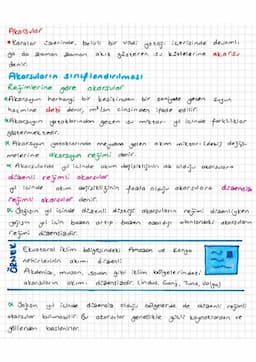 Akarsular
• Karalar üzerinde, belirli bir vadi yatağı içerisinde devamlı
ya da zaman zaman akış gösteren su kütlelerine akarsu
denir.
Akarsuların sınıflandırılması
Rejimlerine göre akarsular
Akarsuyun herhangi bir kesitinden bir saniyede geçen suyun
hacmine debi denir, m³/sn cinsinden ifade edilir.
Akarsuyun yataklarından geçen su miktarı yıl içinde farklılıklar
göstermektedir.
Akarsuyun yataklarında meydana gelen akım miktarındaki değiş-
melerine akarsuyun rejimi denir.
Akarsularda yıl içinde akım değişikliğinin az olduğu akarsulara
düzenli rejimli akarsular
yıl içinde akım değişikliğinin fazla olduğu akarsulara düzensiz
rejimli akarsular denir.
Yağışın yıl içinde düzenli düştüğü akarsuların rejimi düzenliyken
yağışın yıl için bazen artıp bazen azaldığı akarsuların
rejimi düzensizdir.
ÖRNEK
Ekvatoral iklim bölgesindeki Amazon ve Kongo
nehirlerinin akımı düzenli
Akdeniz, muson, savan gibi iklim bölgelerindeki
akarsuların akımı düzensizdir. (indus, Ganj, Tuna, Volga)
Yağışın yıl içinde düzensiz olduğu bölgelerde de düzenli rejimli
akarsular bulunabilir. Bu akarsular genellikle gür kaynaklardan ve
göllerden beslenirler.